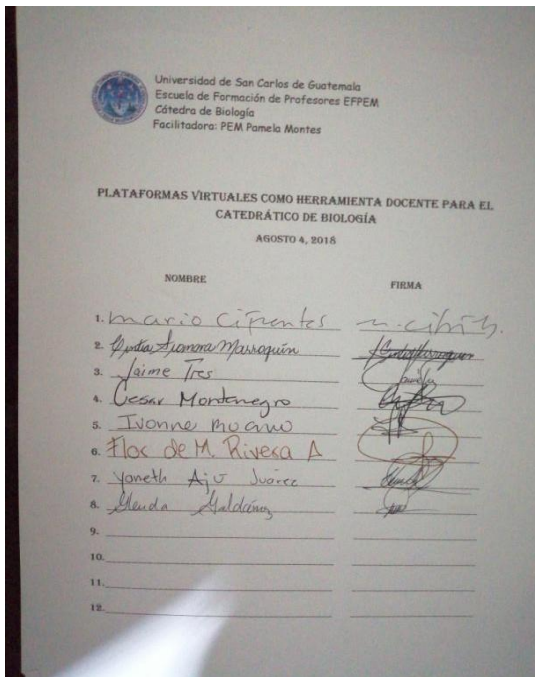 Universidad de San Carlos de Guatemala
Escuela de Formación de Profesores EFPEM
Cátedra de Biología
Facilitadora: PEM Pamela Montes
PLATAFORMAS VIRTUALES COMO HERRAMIENTA DOCENTE PARA EL
CATEDRÁTICO DE BIOLOGÍA
AGOSTO 4, 2018
NOMBRE FIRMA
1. Mario Cifuentes
2. Marroquín
3. Jaime Tres
4. Cesar Montenegro
5. Ivonne
6. Flor de M. Rivera A
7. Yoneth Ajú Juárez
8. Glenda
9.
10.
11.
12.